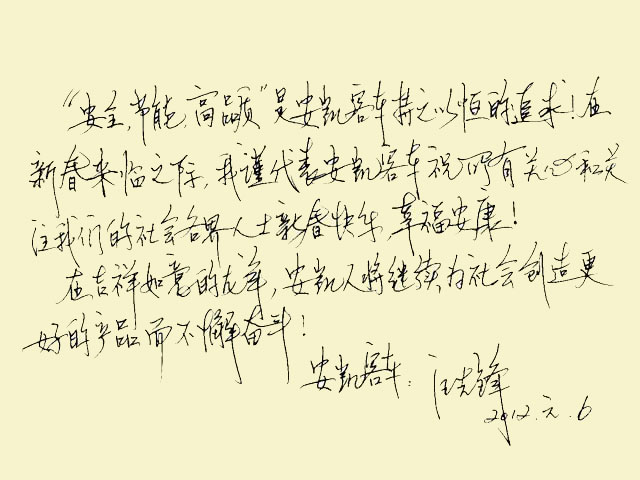 “安全,节能,高品质”是安凯客车持之以恒的追求!在
新春来临之际,我谨代表安凯客车祝所有关心和关
注我们的社会各界人士新春快乐,幸福安康!
在吉祥如意的龙年,安凯人将继续为社会创造更
好的产品而不懈奋斗!
安凯客车:汪先锋
2012.元.6